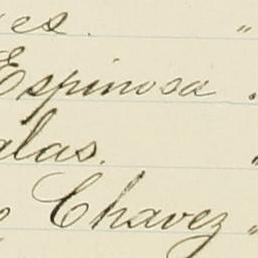 es. "
Espinosa .
alas. "
Chavez "